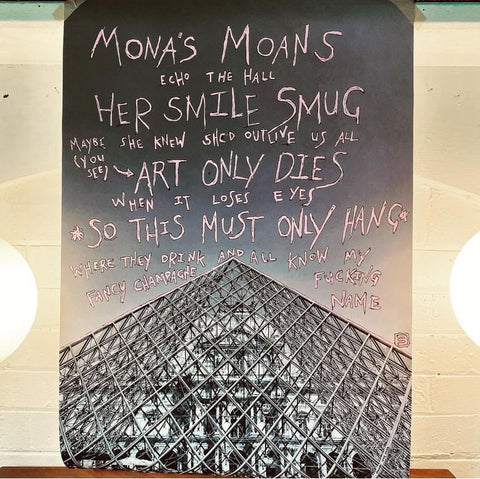 MONA'S MOANS
ECHO THE HALL
HER SMILE SMUG
MAYBE SHE KNEW SHE'D OUTLIVE US ALL
(YOU SEE) → ART ONLY DIES
WHEN IT LOSES EYES
*SO THIS MUST ONLY HANG*
WHERE THEY DRINK AND ALL KNOW MY
FANCY CHAMPAGNE FUCKING
NAME